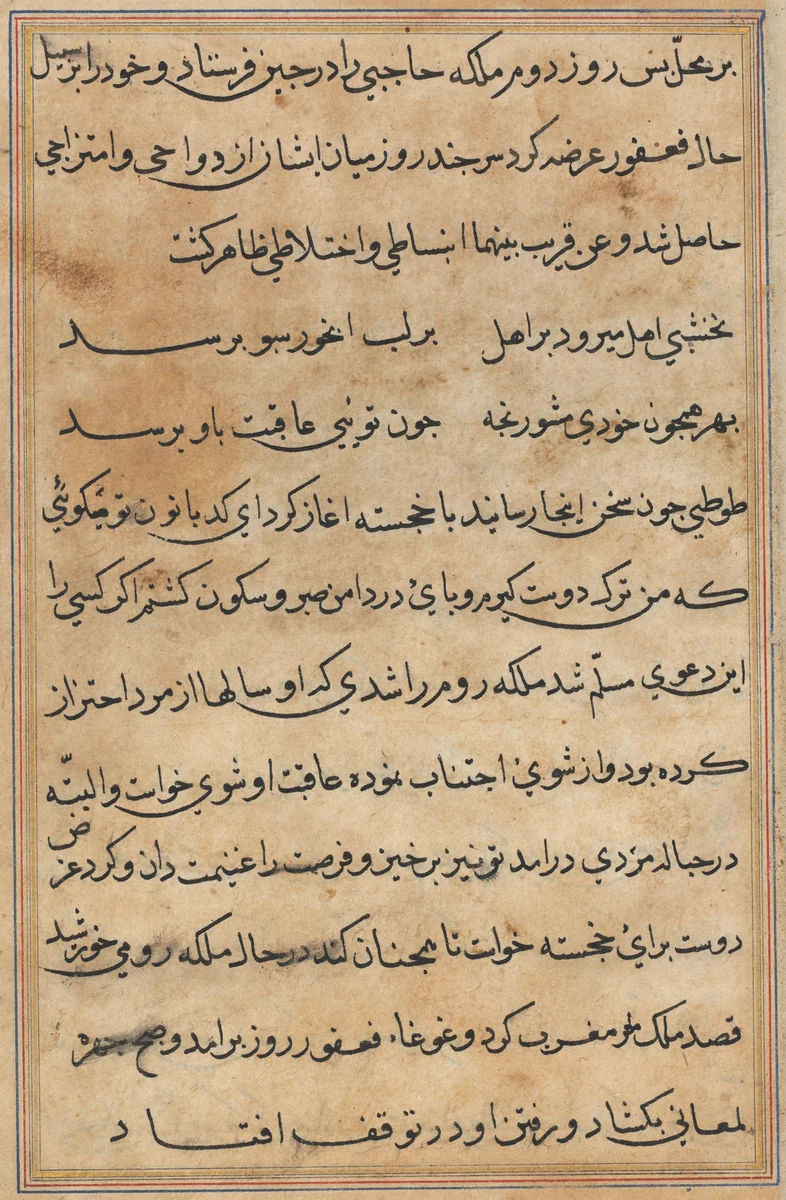 بر محلّ بس روز دوم ملکه حاجبي را در جين فرستاد و خود را بر سبيل
حال فغفور عرضه کرد سر جند روز ميان ايشان ازدواجي و امتزاجي
حاصل شد و عن قريب بينهما انبساطي و اختلاطي ظاهر کشت
نخشبي اهل ميرود بر اهل بر لب ابخور سبو برسد
بهر همجون خودي مشو رنجه جون تو ئي عاقبت باو برسد
طوطي جون سخن اينجا رسانيد با خجسته اغاز کرد اي کدبانو تو ميکوئي
که من ترک دوست کيرم و پاي در دامن صبر و سکون کشم اکر کسي را
اين دعوي مسلّم شد ملکه روم را شدي که او سالها از مرد احتراز
کرده بود و از شوي اجتناب نموده عاقبت او شوي خواست و البتّه
در حباله مردي درامد تو نيز برخيز و فرصت را غنيمت دان و کرد عرض
دوست براي خجسته خواست تا همجنان کند در حال ملکه رومي خورشيد
قصد ملک مغرب کرد و غوغاء فغفور روز برامد و صبح جهره
لمعاني بکشاد و رفتن او در توقف افتاد